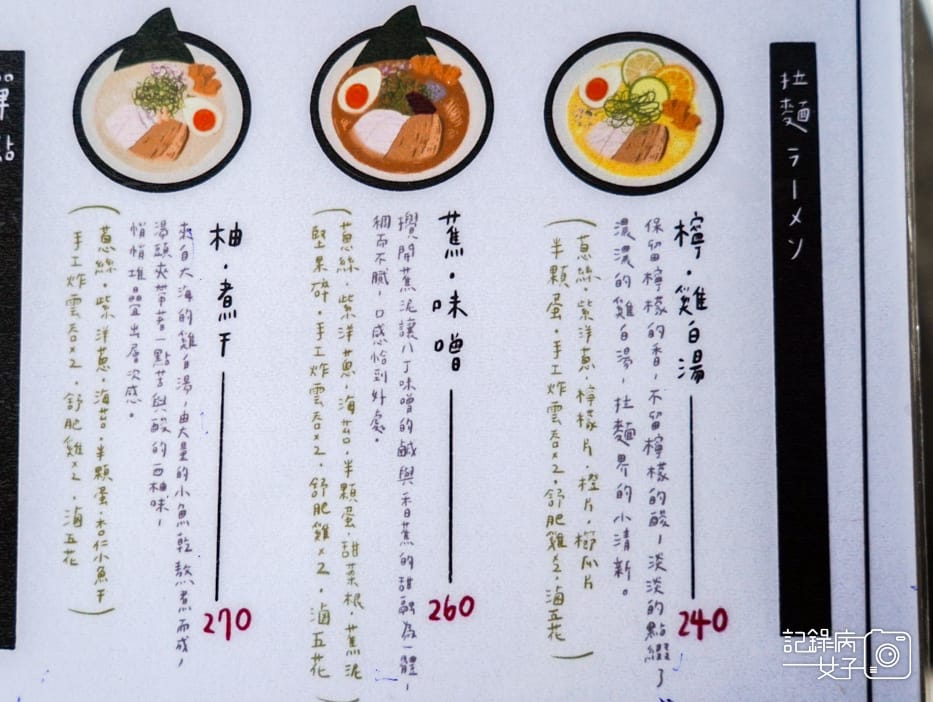 拉麵 ラーメン
檸·雞白湯
240
保留檸檬的香,不留檸檬的酸,淡淡的點綴了
濃濃的雞白湯,拉麵界的小清新。
(蔥絲·紫洋蔥·檸檬片·橙片·櫛瓜片
半顆蛋·手工炸雲吞x2·舒肥雞x2·滷五花)
蕉·味噌
260
攪開蕉泥讓八丁味噌的鹹與香蕉的甜融為一體,
稠而不膩,口感恰到好處。
(蔥絲·紫洋蔥·海苔·半顆蛋·甜菜根·蕉泥
堅果碎·手工炸雲吞x2·舒肥雞x2·滷五花
柚·煮干
270
來自大海的雞白湯,由大量的小魚乾熬煮而成,
湯頭夾帶著一點苦與酸的西柚味,
悄悄堆疊出層次感。
(蔥絲·紫洋蔥·海苔·半顆蛋·杏仁小魚干
手工炸雲吞x2·舒肥雞x2·滷五花)
點
記錄病
女子